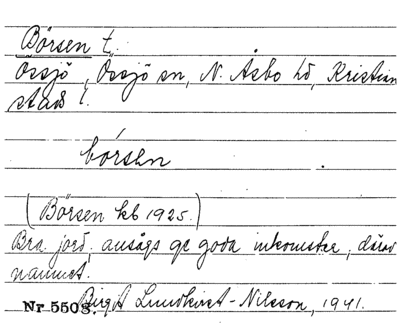 Börsen t.
Össjö, Össjö sn, N. Åsbo hd, Kristian
stads l.
börsen
(Börsen kb 1925.)
Bra jord, ansågs ge goda inkomster, därav
namnet.
Nr 5508. Birgit Lundkvist-Nilsson, 1941.